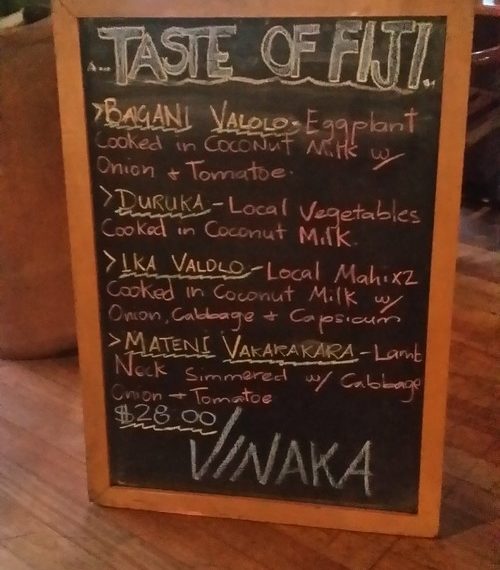 A... TASTE OF FIJI...
>BAGANI VALOLO-Eggplant
Cooked in Coconut Milk w/
Onion + Tomatoe.
>DURUKA-Local Vegetables
Cooked in Coconut Milk.
>IKA VALOLO-Local Mahix2
Cooked in Coconut Milk w/
Onion, Cabbage + Capsicum
>MATENI VAKARAKARA-Lamb
Neck Simmered w/ Cabbage
Onion + Tomatoe
$28.00
VINAKA